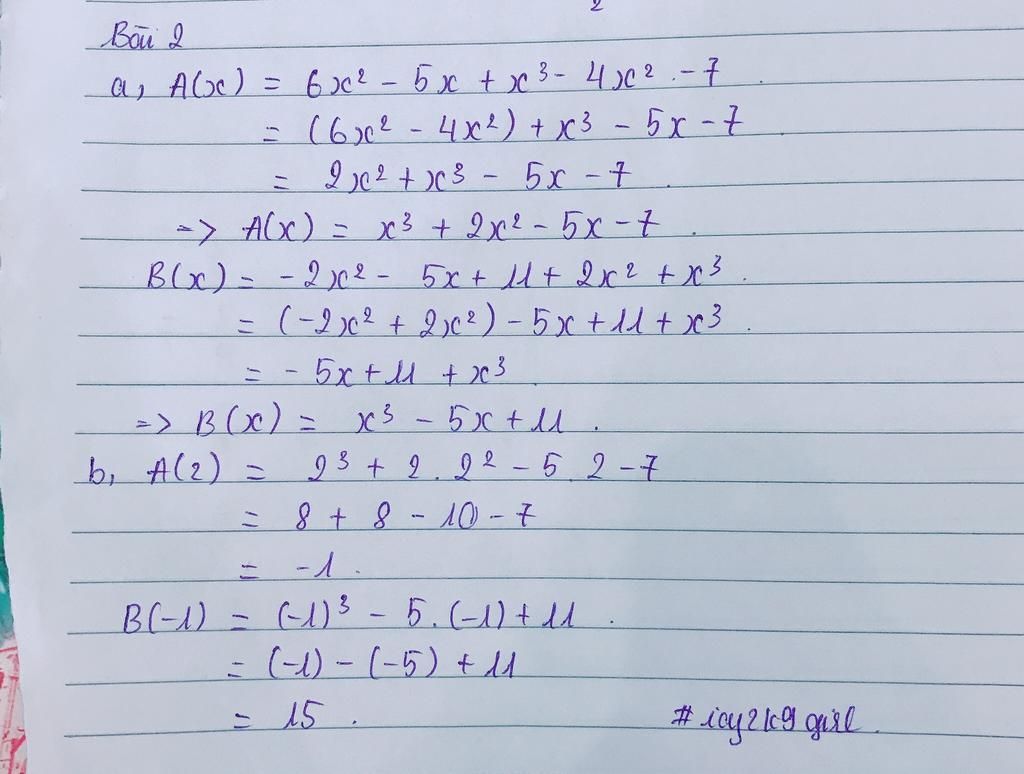 2
Bài 2
a, A(x) = 6x² - 5x + x³ - 4x² - 7
= (6x² - 4x²) + x³ - 5x - 7
= 2x² + x³ - 5x - 7
=> A(x) = x³ + 2x² - 5x - 7.
B(x) = -2x² - 5x + 11 + 2x² + x³.
= (-2x² + 2x²) - 5x + 11 + x³.
= - 5x + 11 + x³
=> B(x) = x³ - 5x + 11.
b, A(2) = 2³ + 2 . 2² - 5 . 2 - 7
= 8 + 8 - 10 - 7
= -1.
B(-1) = (-1)³ - 5 . (-1) + 11.
= (-1) - (-5) + 11
= 15.
# icy2k9 girl.